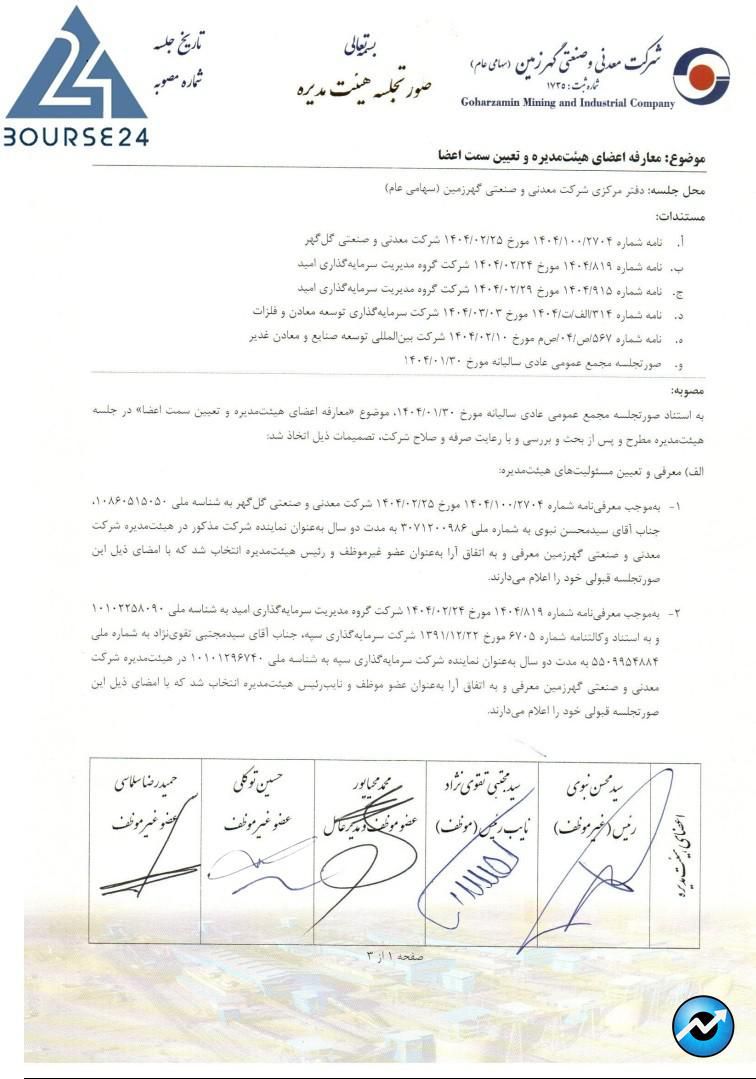 بسمه‌تعالی
صورتجلسه هیئت مدیره
تاریخ جلسه
شماره مصوبه
BOURSE24
شرکت معدنی و صنعتی گهرزمین (سهامی عام)
شماره ثبت: ۱۷۳۵
Goharzamin Mining and Industrial Company
موضوع: معارفه اعضای هیئت‌مدیره و تعیین سمت اعضا
محل جلسه: دفتر مرکزی شرکت معدنی و صنعتی گهرزمین (سهامی عام)
مستندات:
أ. نامه شماره ۱۴۰۴/۱۰۰/۲۷۰۴ مورخ ۱۴۰۴/۰۲/۲۵ شرکت معدنی و صنعتی گل‌گهر
ب. نامه شماره ۱۴۰۴/۸۱۹ مورخ ۱۴۰۴/۰۲/۲۴ شرکت گروه مدیریت سرمایه‌گذاری امید
ج. نامه شماره ۱۴۰۴/۹۱۵ مورخ ۱۴۰۴/۰۲/۲۹ شرکت گروه مدیریت سرمایه‌گذاری امید
د. نامه شماره ۳۱۴/الف/ت/۱۴۰۴ مورخ ۱۴۰۴/۰۳/۰۳ شرکت سرمایه‌گذاری توسعه معادن و فلزات
ه. نامه شماره ۵۶۷/ص/۰۴/ص‌م مورخ ۱۴۰۴/۰۲/۱۰ شرکت بین‌المللی توسعه صنایع و معادن غدیر
و. صورتجلسه مجمع عمومی عادی سالیانه مورخ ۱۴۰۴/۰۱/۳۰
مصوبه:
به استناد صورتجلسه مجمع عمومی عادی سالیانه مورخ ۱۴۰۴/۰۱/۳۰، موضوع «معارفه اعضای هیئت‌مدیره و تعیین سمت اعضا» در جلسه
هیئت‌مدیره مطرح و پس از بحث و بررسی و با رعایت صرفه و صلاح شرکت، تصمیمات ذیل اتخاذ شد:
الف) معرفی و تعیین مسئولیت‌های هیئت‌مدیره:
۱- به‌موجب معرفی‌نامه شماره ۱۴۰۴/۱۰۰/۲۷۰۴ مورخ ۱۴۰۴/۰۲/۲۵ شرکت معدنی و صنعتی گل‌گهر به شناسه ملی ۱۰۸۶۰۵۱۵۰۵۰،
جناب آقای سیدمحسن نبوی به شماره ملی ۳۰۷۱۲۰۰۹۸۶ به مدت دو سال به‌عنوان نماینده شرکت مذکور در هیئت‌مدیره شرکت
معدنی و صنعتی گهرزمین معرفی و به اتفاق آرا به‌عنوان عضو غیرموظف و رئیس هیئت‌مدیره انتخاب شد که با امضای ذیل این
صورتجلسه قبولی خود را اعلام می‌دارند.
۲- به‌موجب معرفی‌نامه شماره ۱۴۰۴/۸۱۹ مورخ ۱۴۰۴/۰۲/۲۴ شرکت گروه مدیریت سرمایه‌گذاری امید به شناسه ملی ۱۰۱۰۲۲۵۸۰۹۰
و به استناد وکالتنامه شماره ۶۷۰۵ مورخ ۱۳۹۱/۱۲/۲۲ شرکت سرمایه‌گذاری سپه، جناب آقای سیدمجتبی تقوی‌نژاد به شماره ملی
۵۵۰۹۹۵۴۸۸۴ به مدت دو سال به‌عنوان نماینده شرکت سرمایه‌گذاری سپه به شناسه ملی ۱۰۱۰۱۲۹۶۷۴۰ در هیئت‌مدیره شرکت
معدنی و صنعتی گهرزمین معرفی و به اتفاق آرا به‌عنوان عضو موظف و نایب‌رئیس هیئت‌مدیره انتخاب شد که با امضای ذیل این
صورتجلسه قبولی خود را اعلام می‌دارند.
اعضای هیئت مدیره
سید محسن نبوی
رئیس (غیرموظف)
سید مجتبی تقوی نژاد
نایب رئیس (موظف)
محمد محیاپور
عضو موظف و مدیرعامل
حسین توکلی
عضو غیرموظف
حمیدرضا سلاسی
عضو غیرموظف
صفحه ۱ از ۳